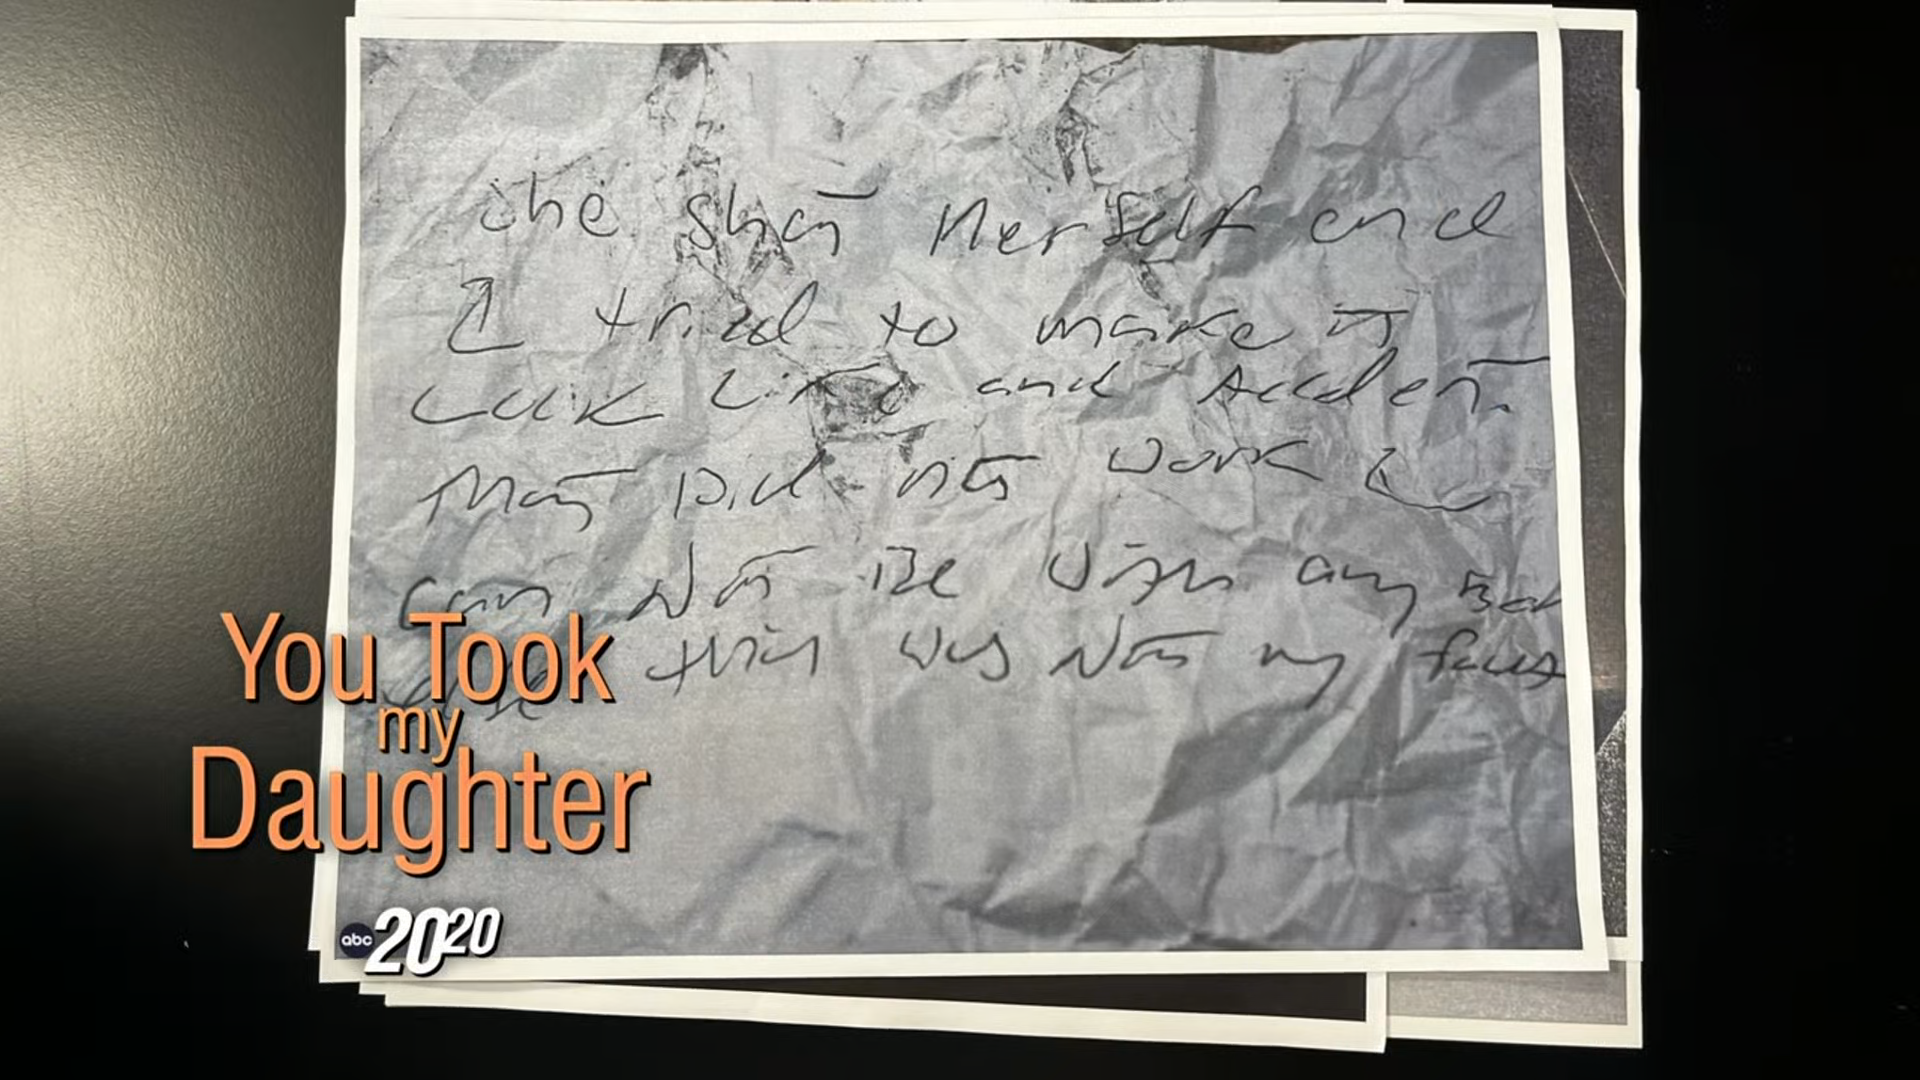 She shot Herself and
I tried to make it
Look Like and Accident.
That Did not work I
Can Not Be With any Bod
this was Not my fault
You Took
my
Daughter
abc 20/20